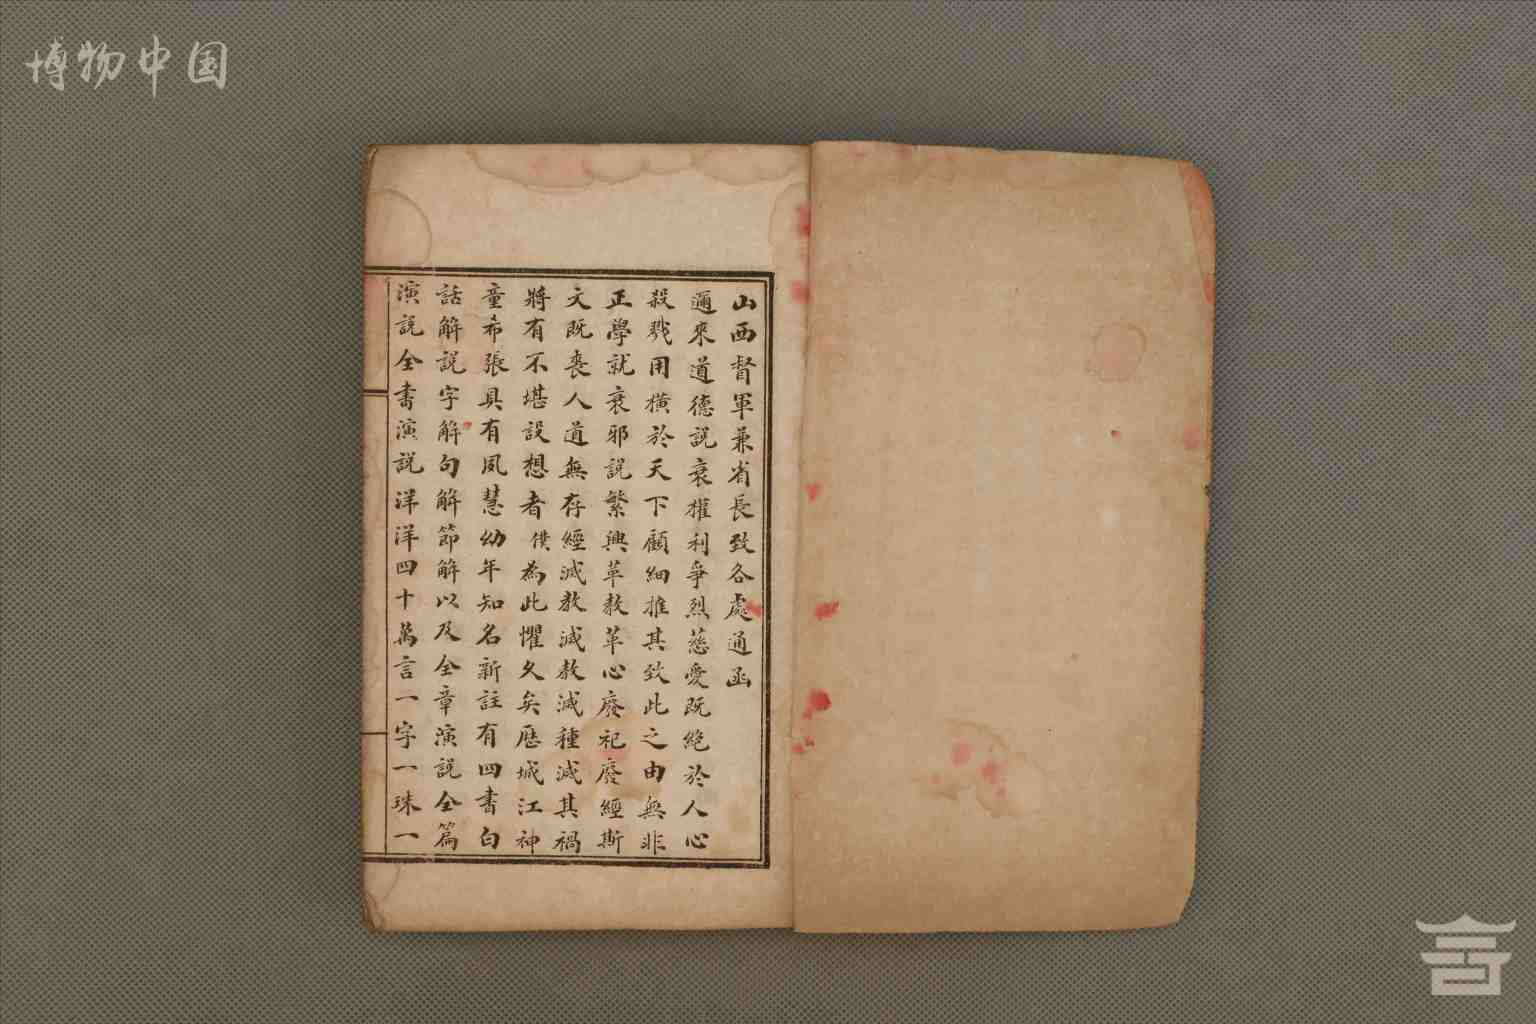 博物中国
山西督軍兼省長致各處通函
邇來道德說衰權利爭烈慈愛既絕於人心
殺戮用橫於天下顧細推其致此之由無非
正學就衰邪說繁興革教革心廢祀廢經斯
文既喪人道無存經滅教滅教滅種滅其禍
將有不堪設想者僕為此懼久矣歷城江神
童希張具有夙慧幼年知名新註有四書白
話解說字解句解節解以及全章演說全篇
演說全書演說洋洋四十萬言一字一珠一